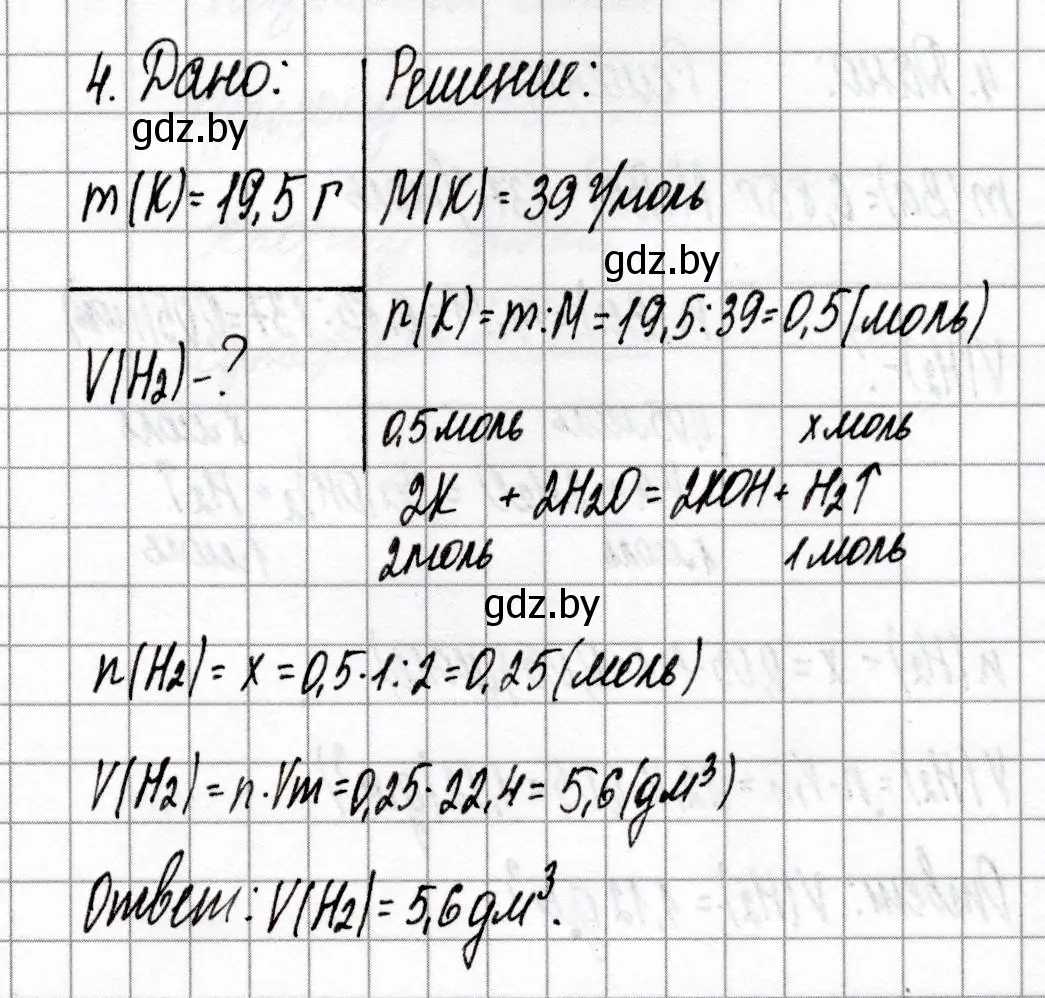 4. Дано:
gdz.by
m(K) = 19,5 г
V(H₂) - ?
Решение:
M(K) = 39 г/моль
gdz.by
n(K) = m:M = 19,5:39 = 0,5 (моль)
0,5 моль x моль
2K + 2H₂O = 2KOH + H₂↑
2 моль 1 моль
gdz.by
n(H₂) = x = 0,5·1:2 = 0,25 (моль)
V(H₂) = n·Vm = 0,25·22,4 = 5,6 (дм³)
Ответ: V(H₂) = 5,6 дм³.